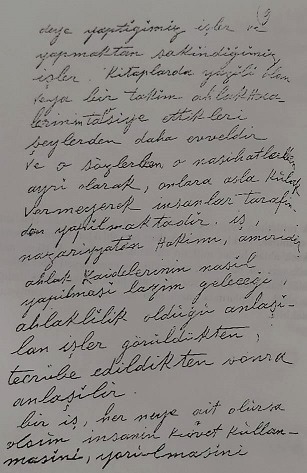 9
derge yaptiğimiz işler ve
yapmaktan sakindiğimiz
işler. Kitaplarda yazili olan
veya bir takim ahlak Hoca-
larinin tafsiye ettikleri
şeylerden daha evveldir
Ve o sözlerden o nasihatlardan
ayri olarak, onlara asla Kulak
vermeyerek insanlar tarafin-
dan yapilmaktadir. iş,
nazariyyatin Hakimi, amiridir
ahlak Kaidelerinin nasil
yapilmasi lazim geleceği,
ahlaklilik olduğu anlaşi-
lan işler görüldükten,
tecrübe edildikten sonra
anlaşilir.
bir iş, her neye ait olursa
olsun insanin Kuvet Kullan-
masini, yorulmasini